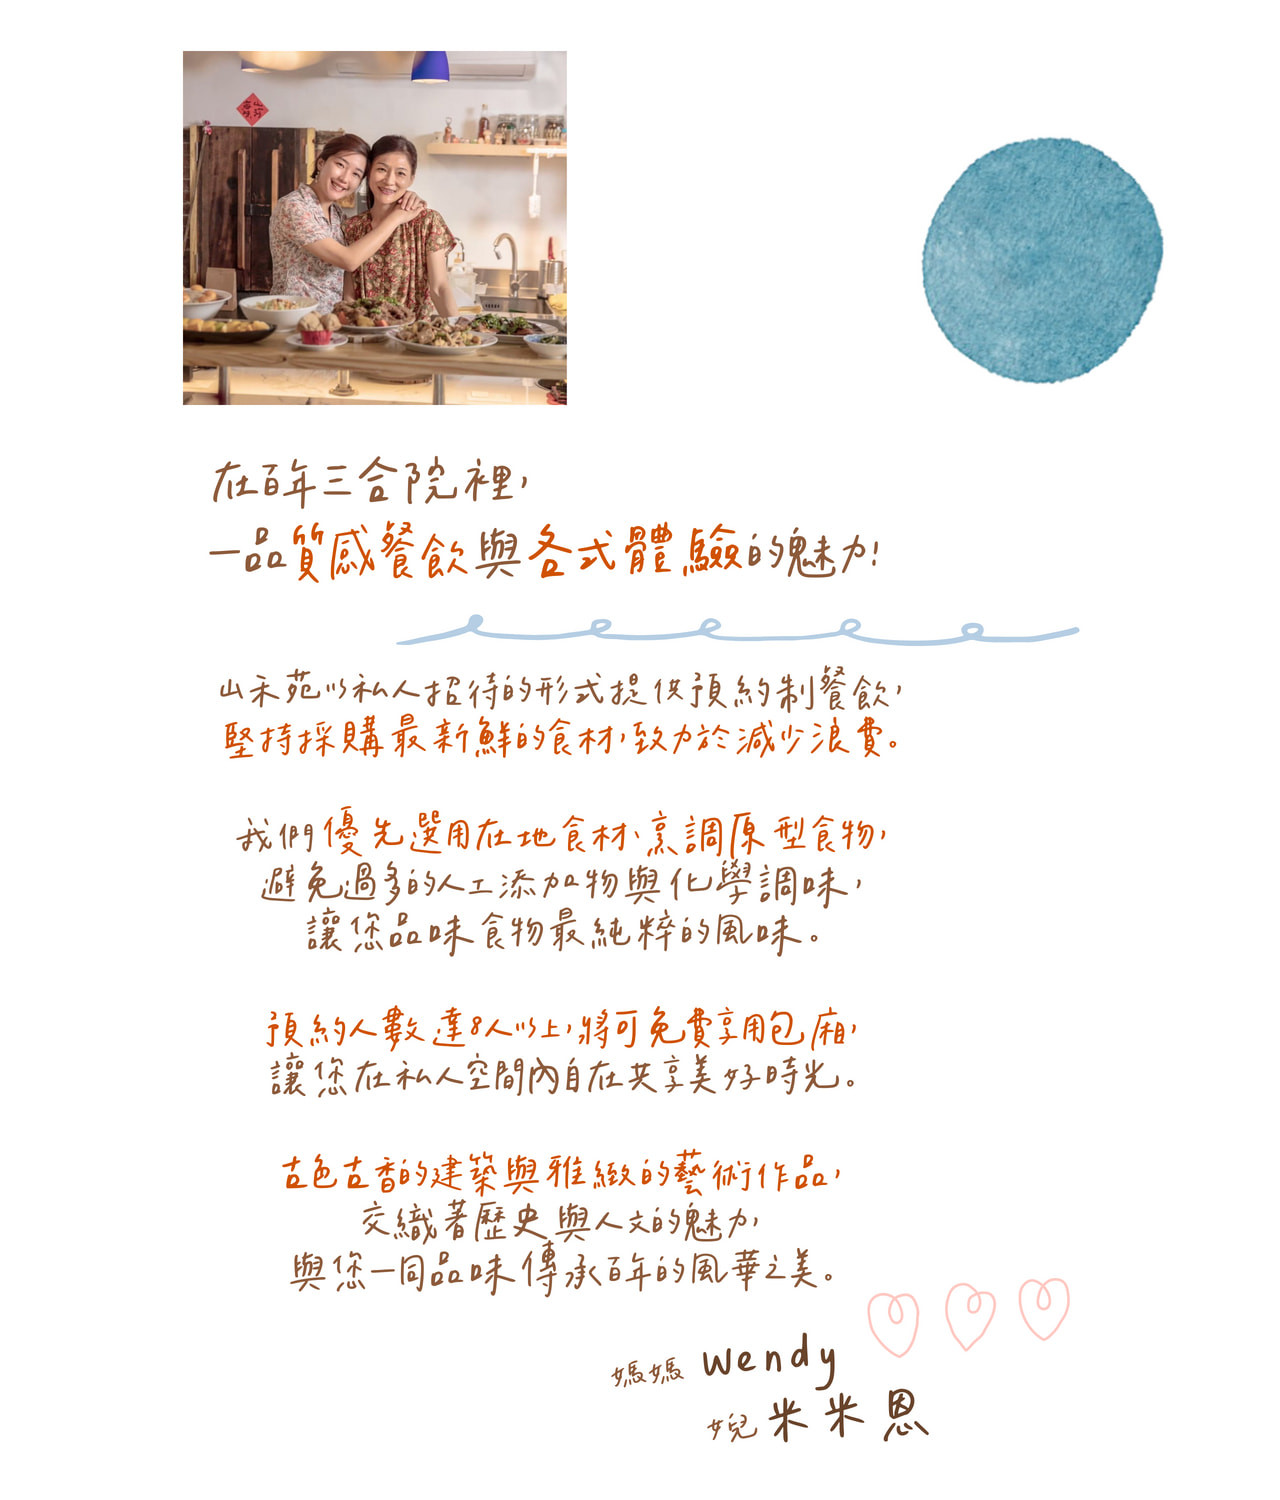 在百年三合院裡，
一品質感餐飲與各式體驗的魅力!
山禾苑以私人招待的形式提供預約制餐飲，
堅持採購最新鮮的食材，致力於減少浪費。
我們優先選用在地食材、烹調原型食物，
避免過多的人工添加物與化學調味，
讓您品味食物最純粹的風味。
預約人數達8人以上，將可免費享用包廂，
讓您在私人空間內自在共享美好時光。
古色古香的建築與雅緻的藝術作品，
交織著歷史與人文的魅力，
與您一同品味傳承百年的風華之美。
媽媽 Wendy
女兒 米米恩